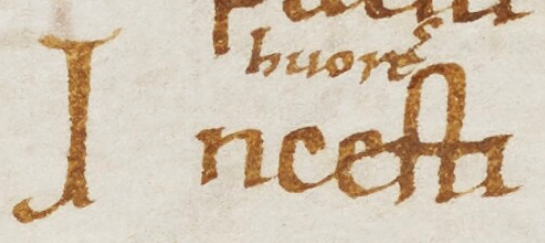 huores
Incesti